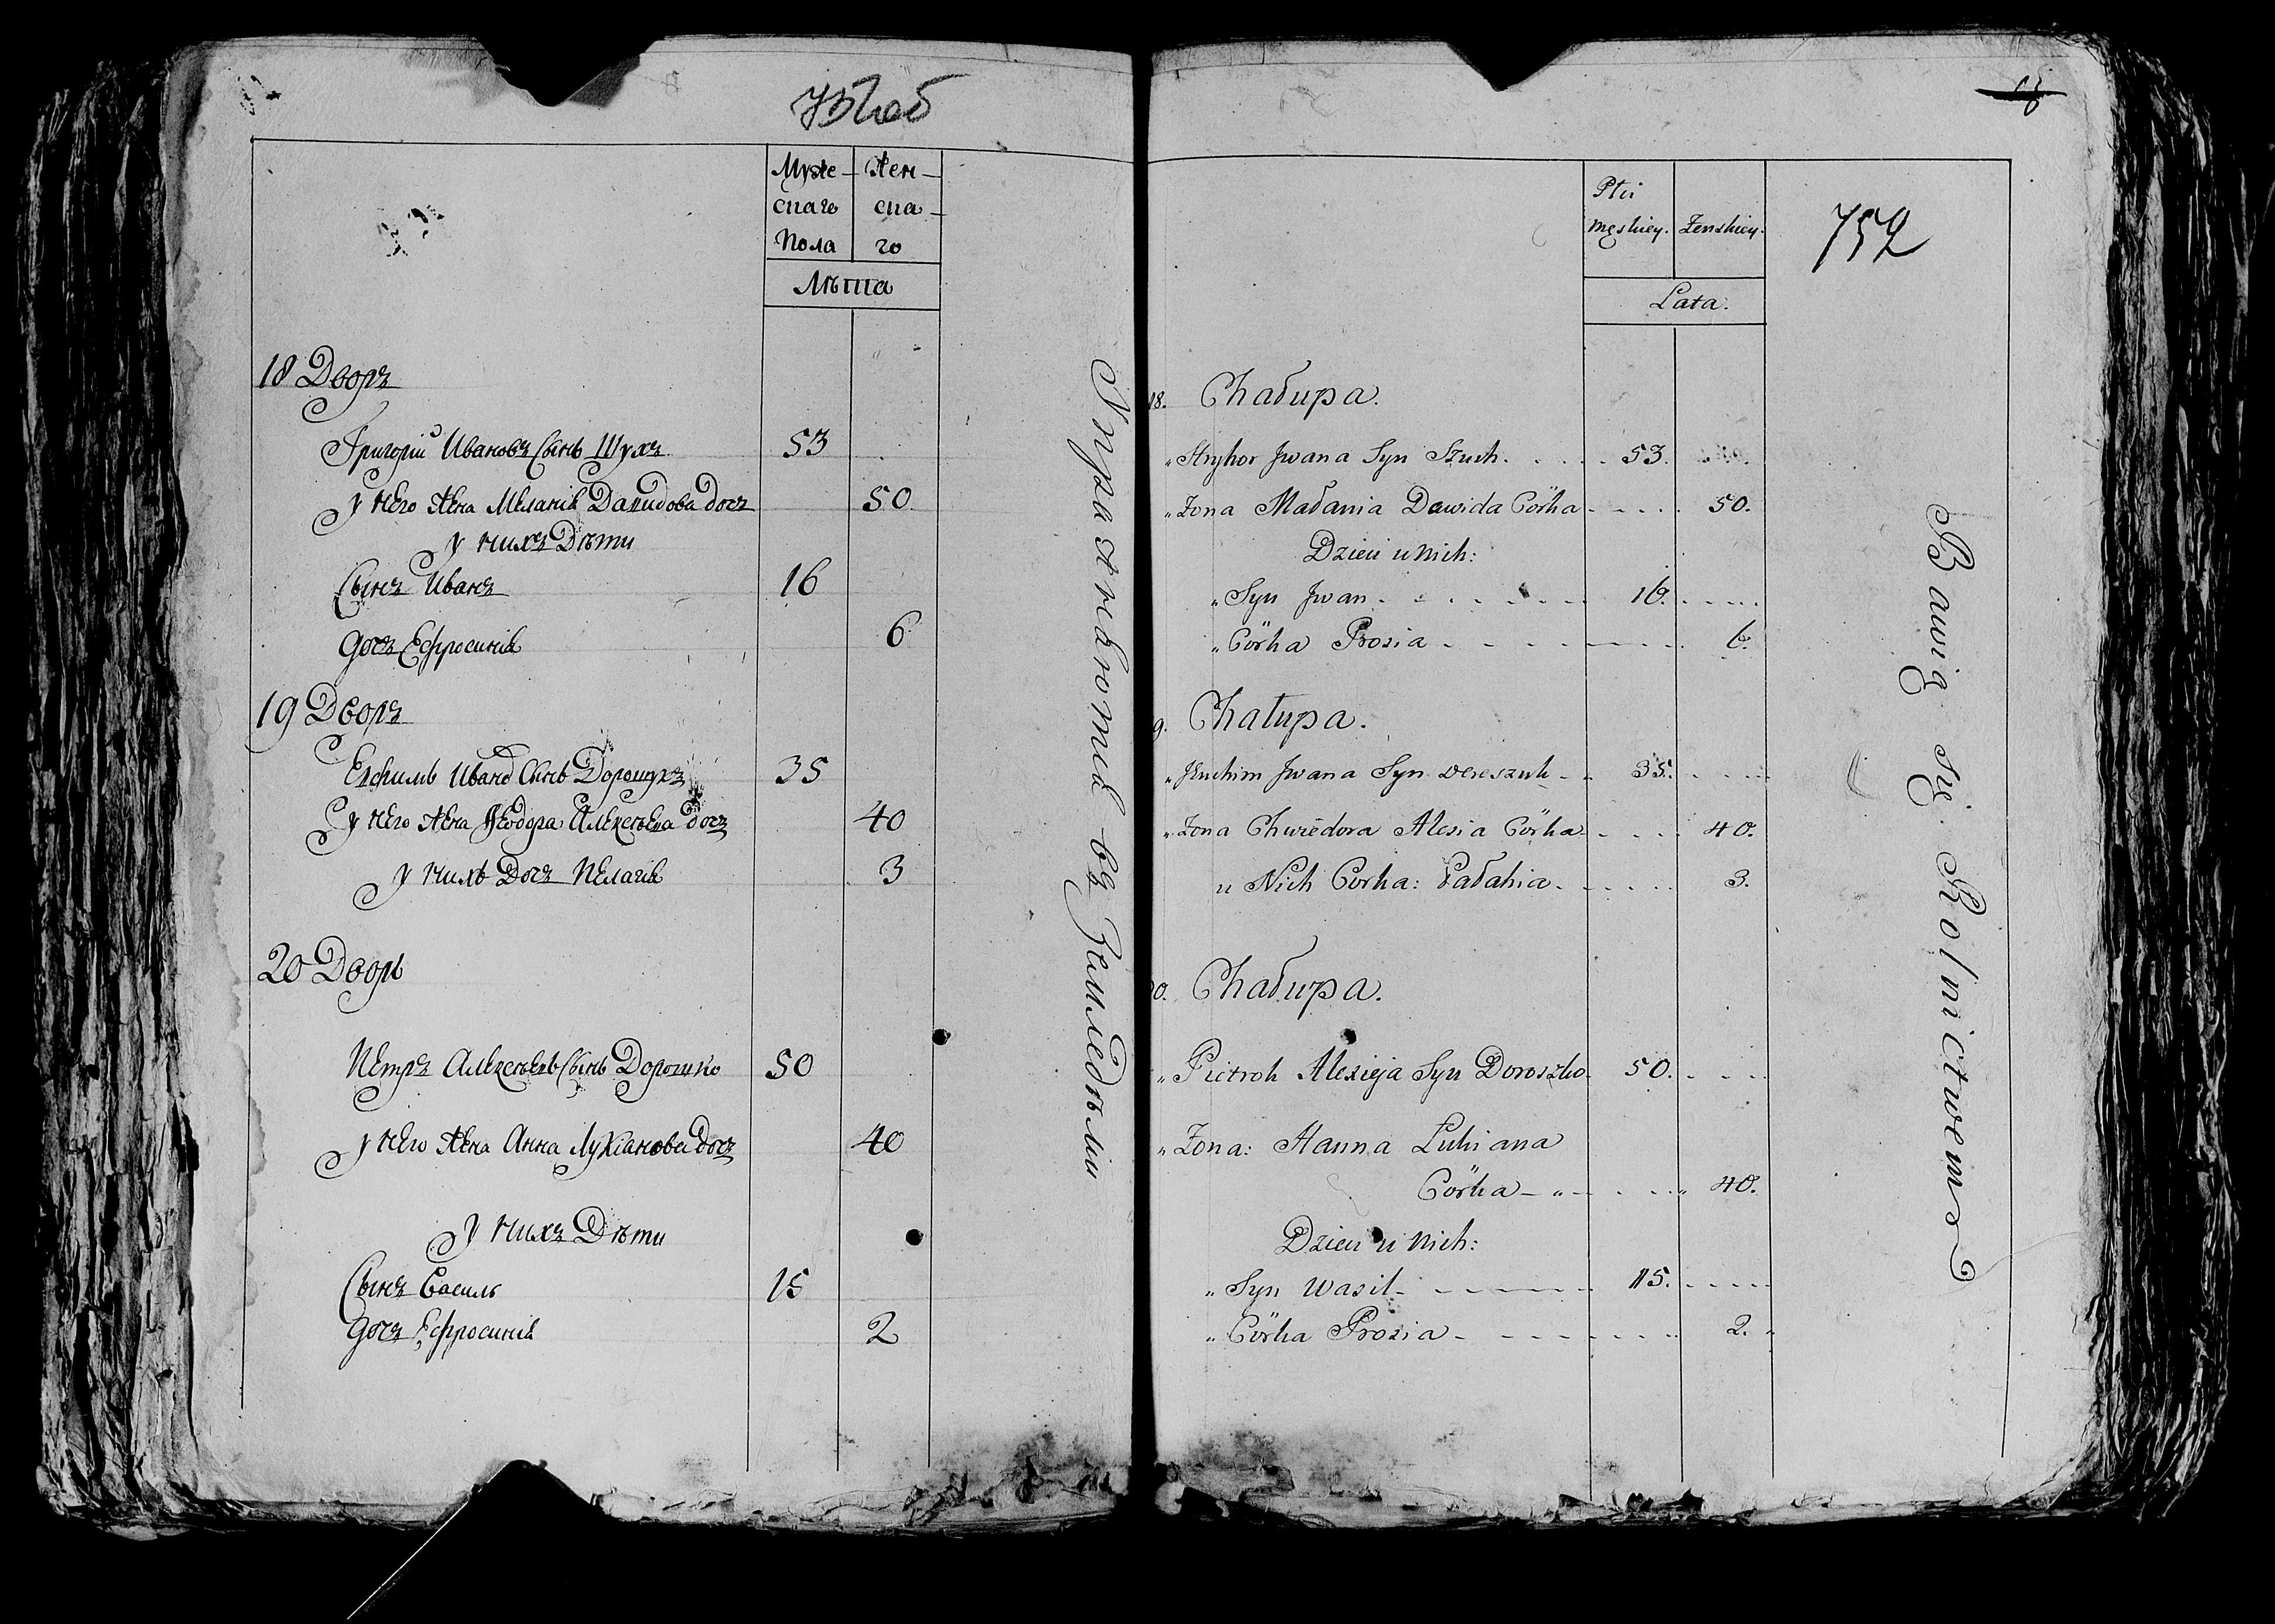 Муже- Жен-
скаго ска-
Пола го
Лѣта
18 Дворъ
Григорiй Ивановъ Сынъ Шухъ 53
у него жена Меланiя Давидова дочъ 50.
у нихъ Дѣти
Сынъ Иванъ 16
дочъ Ефросинiя 6
19 Дворъ
Евхимъ Иванов Сынъ Дорошукъ 35
у него жена Феодора Алексѣева дочъ 40
у нихъ Дочъ Пелагiя 3
20 Дворъ
Петръ Алексѣевъ Сынъ Дорошко 50
у него жена Анна Лукiанова дочъ 40
у нихъ Дѣти
Сынъ Василь 15
дочъ Ефросинiя 2
Упражняются въ Земледѣлiи
18
752
Płci
męskiey. Żenskiey.
Lata.
18. Chałupa.
" Hryhor Jwana Syn Szuch. 53.
" Żona Małania Dawida Córka 50.
Dzieci u Nich:
" Syn Jwan 16.
" Córka Prosia 6.
9. Chałupa.
" Jeuchim Jwana Syn Dereszuk 35.
" Żona Chwiedora Alesia Córka 40.
u Nich Corka: Pałahia. 3.
0. Chałupa.
" Pietroh Alexieja Syn Doroszko 50.
" Żona: Hanna Lukiana
Córka 40.
Dzieci u Nich:
" Syn Wasil 15.
" Córka Prosia 2.
Bawią się Rolnictwem